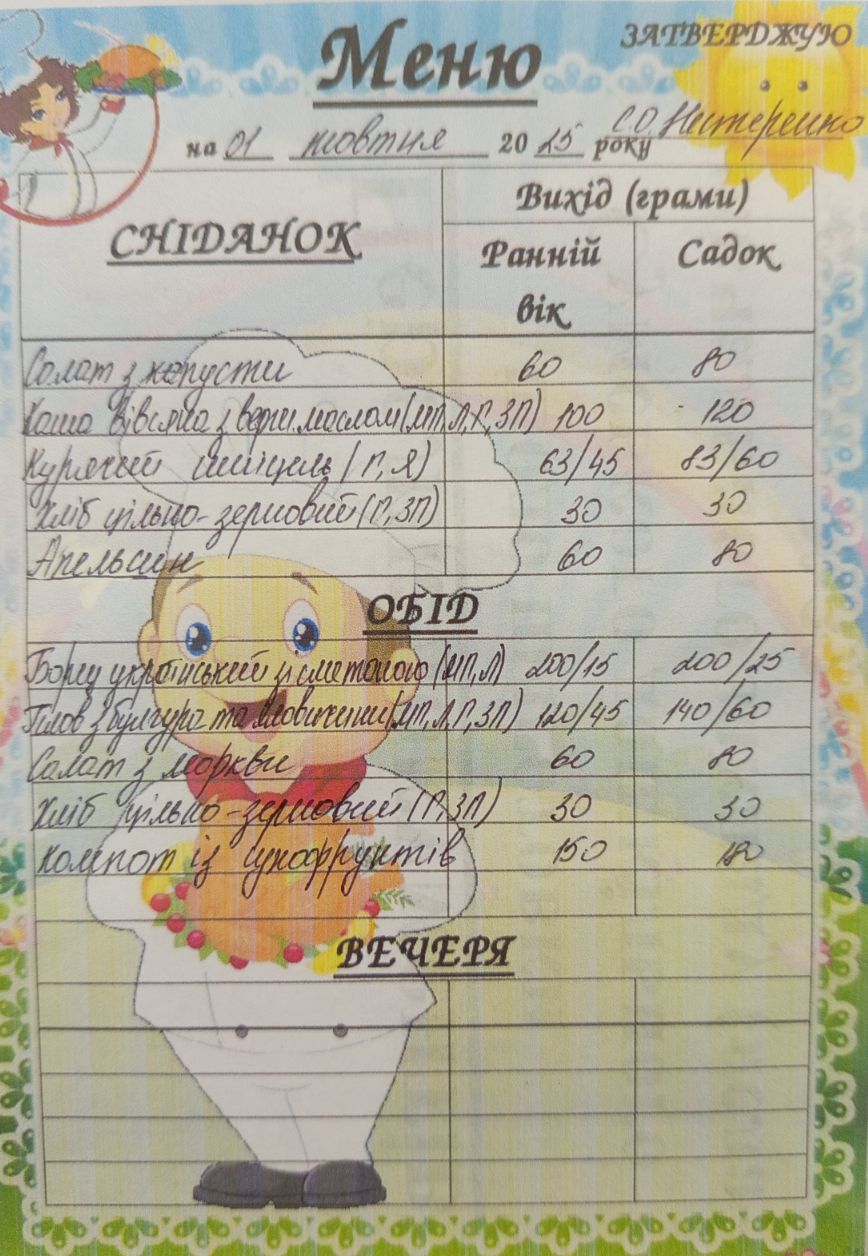 Меню
ЗАТВЕРДЖУЮ
С.О. Нестеренко
на 01 жовтня 2025 року
СНІДАНОК
Вихід (грами)
Ранній вік
Садок
Салат з капусти 60 80
Каша вівсяна з верш. маслом (МП, Л, Г, ЗП) 100 120
Курячий шніцель (Г, Я) 63/45 83/60
Хліб цільно-зерновий (Г, ЗП) 30 30
Апельсин 60 80
ОБІД
Борщ український зі сметаною (МП, Л) 200/15 200/25
Плов з булгура та яловичини (МП, Л, Г, ЗП) 120/45 140/60
Салат з моркви 60 80
Хліб цільно-зерновий (Г, ЗП) 30 30
Компот із сухофруктів 150 180
ВЕЧЕРЯ